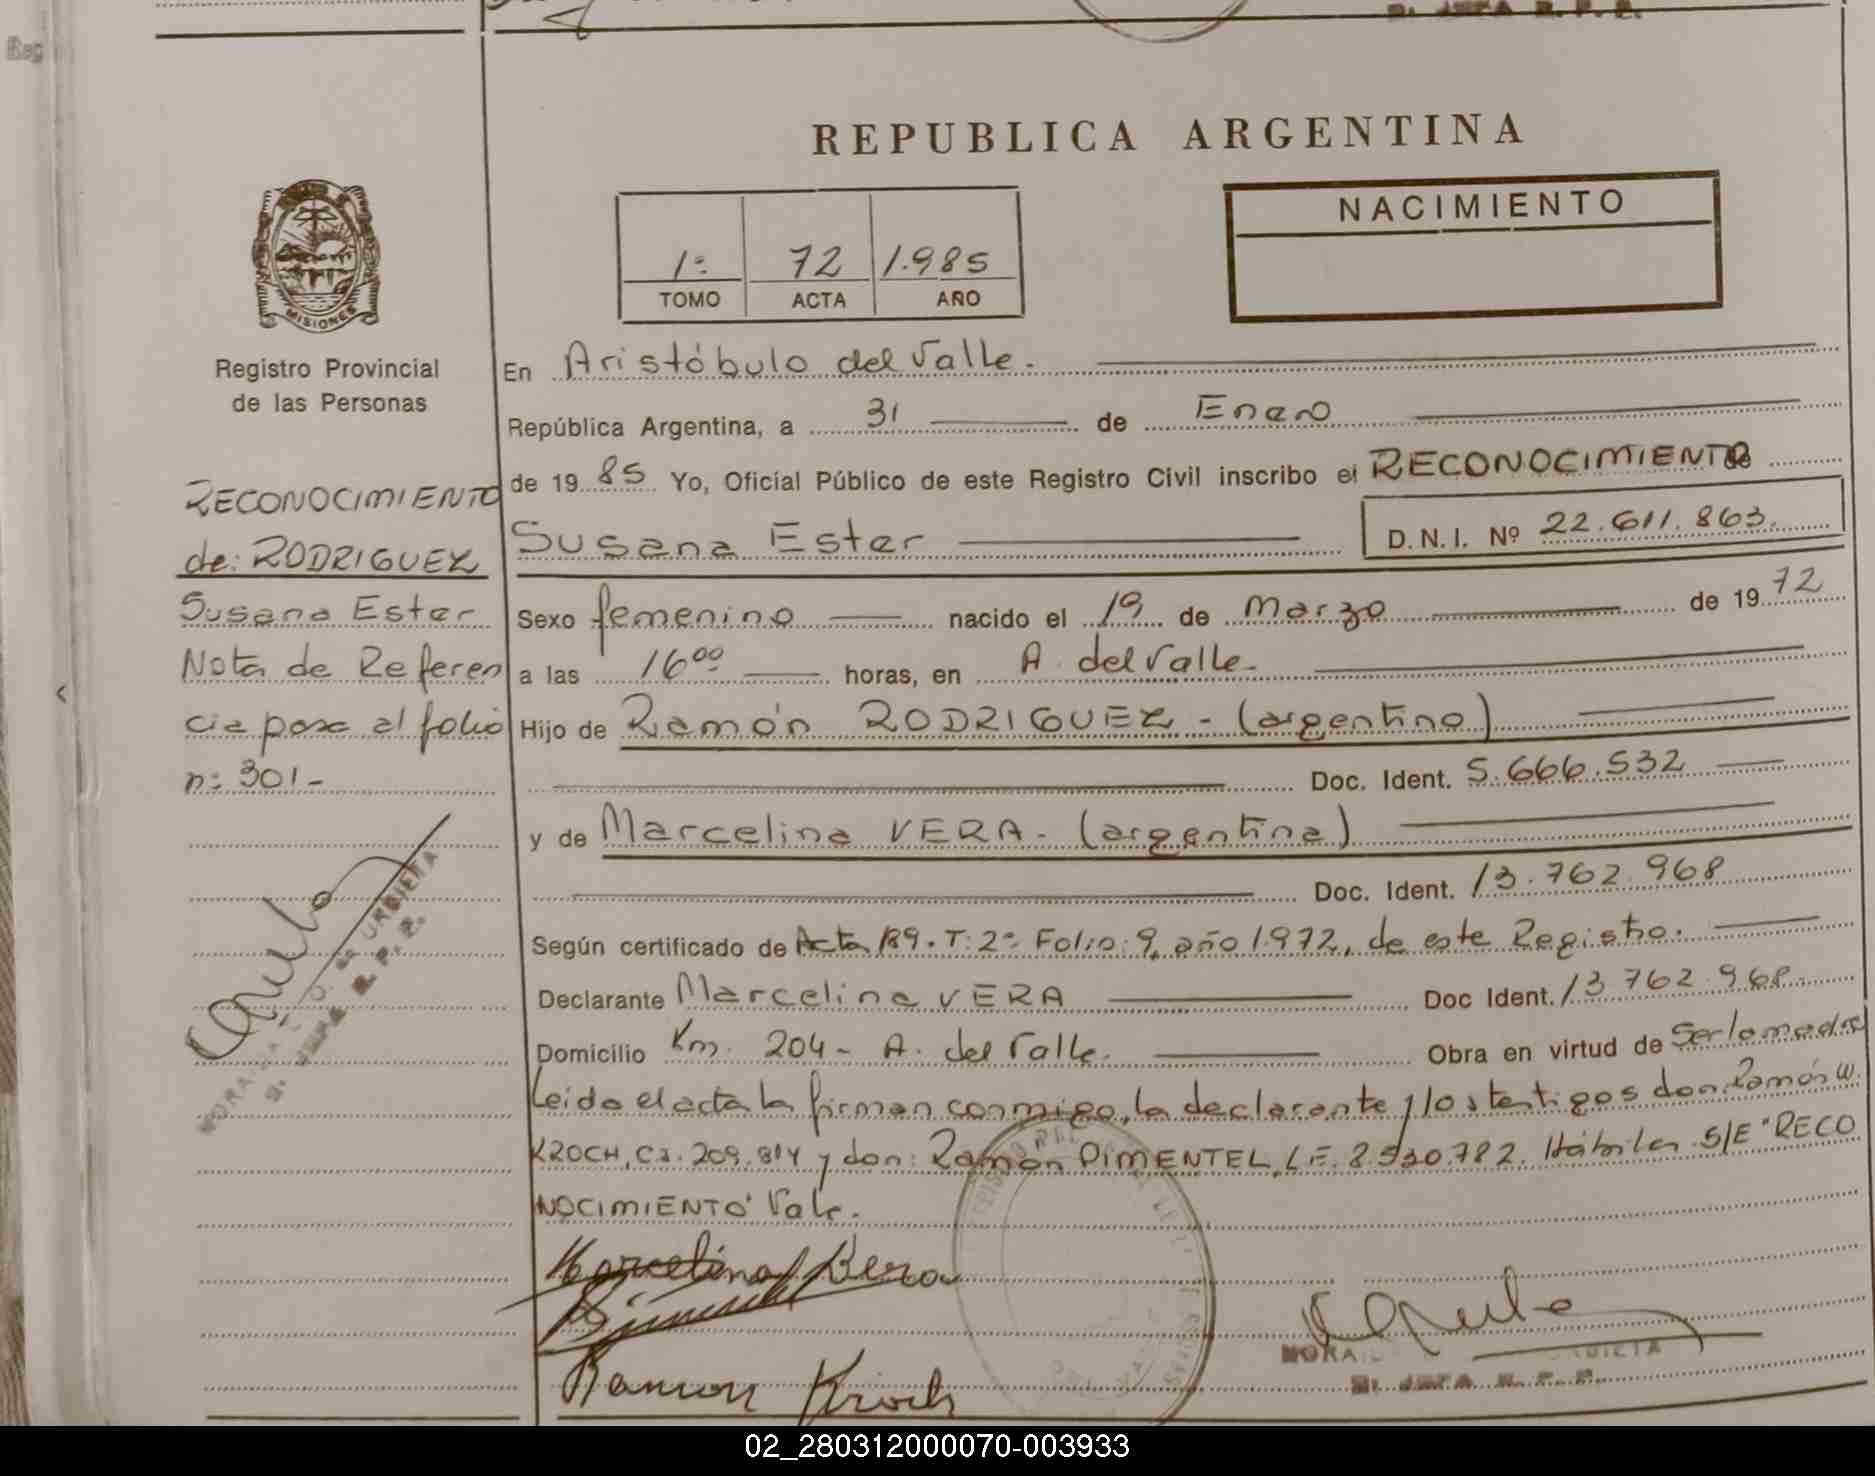 REPUBLICA ARGENTINA
NACIMIENTO
1º 72 1.985
TOMO ACTA AÑO
MISIONES
Registro Provincial
de las Personas
RECONOCIMIENTO
de: RODRIGUEZ
Susana Ester
Nota de Referen
cia pasa al folio
nº 301-
En Aristóbulo del Valle.
República Argentina, a 31 de Enero
de 1985 Yo, Oficial Público de este Registro Civil inscribo el RECONOCIMIENTO de
Susana Ester D.N.I. Nº 22.611.863.
Sexo femenino nacido el 19 de Marzo de 1972
a las 16⁰⁰ horas, en A. del Valle.
Hijo de Ramón RODRIGUEZ - (argentino)
Doc. Ident. 5.666.532
y de Marcelina VERA - (argentina)
Doc. Ident. 13.762.968
Según certificado de Acta 189. T: 2º Folio: 9, año 1.972, de este Registro.
Declarante Marcelina VERA Doc Ident. 13.762.968
Domicilio Km. 204 - A. del Valle. Obra en virtud de Ser la madre
Leida el acta la firman conmigo, la declarante y los testigos don Ramón W.
KROCH, C.I. 209.814 y don: Ramón PIMENTEL, L.E. 8.530.782. Hábiles S/E "RECO
NOCIMIENTO" Vale.
Marcelina Vera
Ramon Kroch
02_280312000070-003933